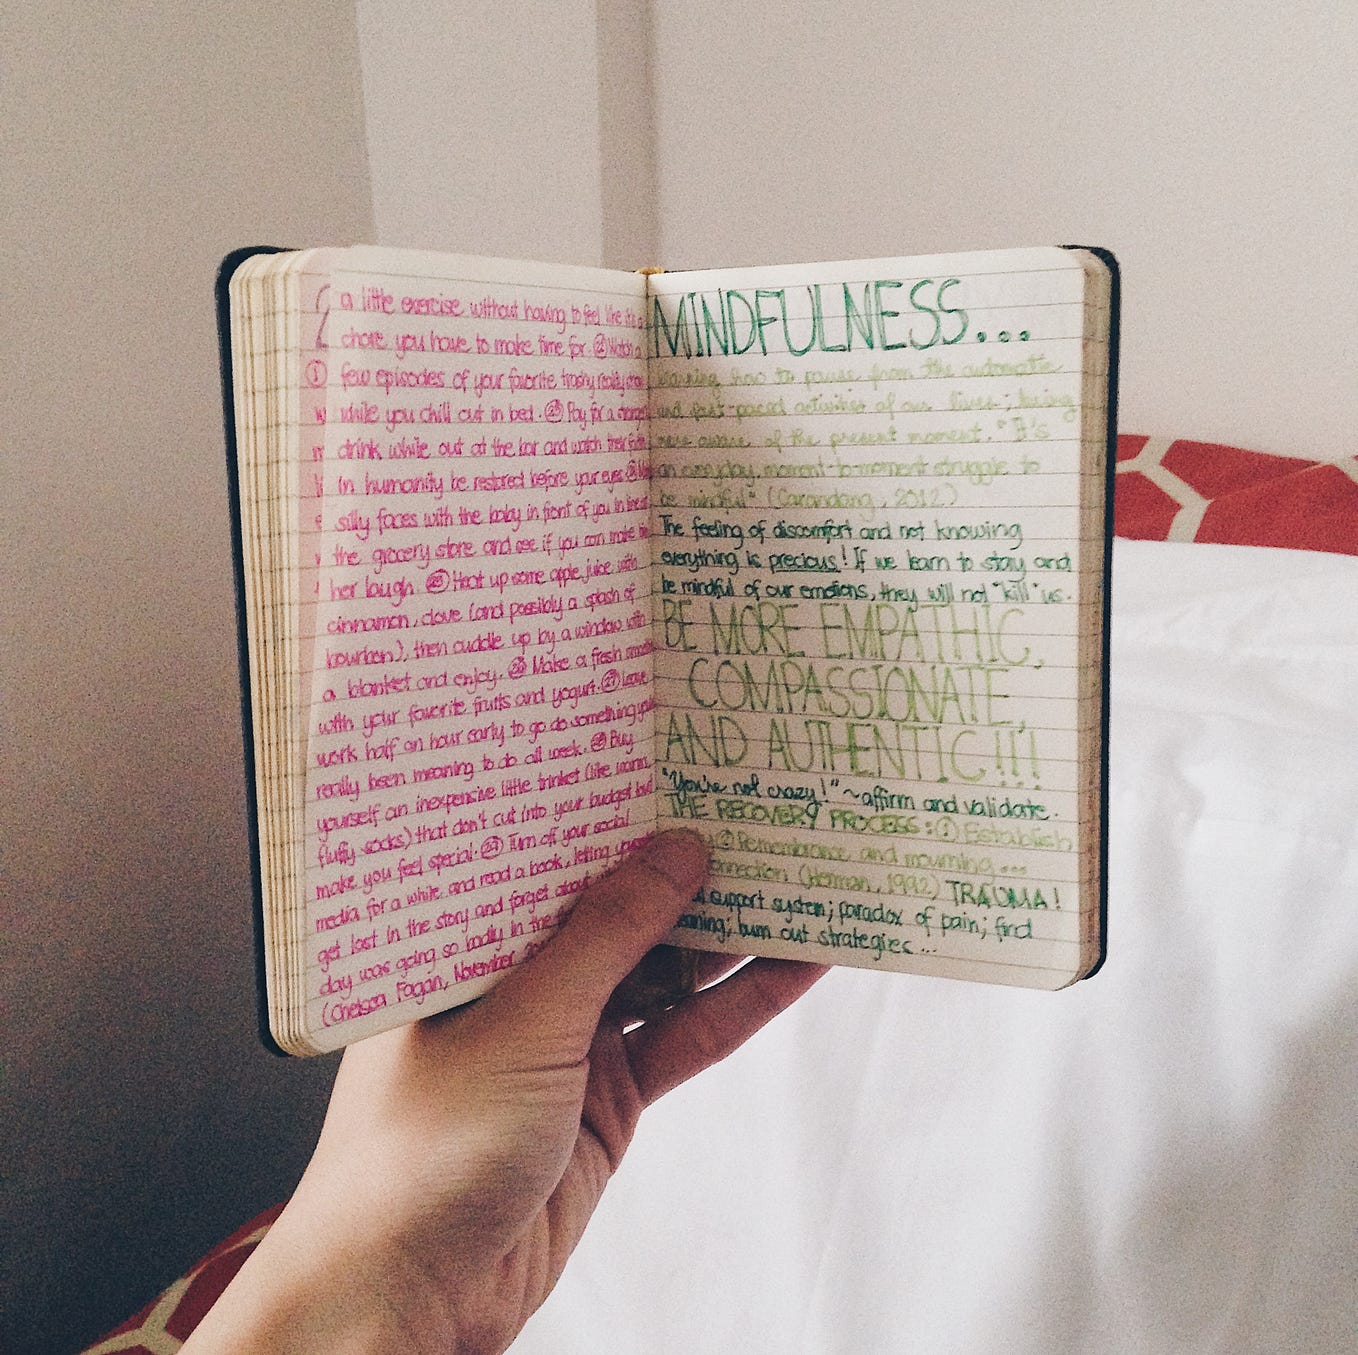 a little exercise without having to feel like it's a
chore you have to make time for. 22 Watch a
few episodes of your favorite trashy reality show
while you chill out in bed. 23 Pay for a stranger's
drink while out at the bar and watch their faith
in humanity be restored before your eyes. 24
silly faces with the baby in front of you in line at
the grocery store and see if you can make him
her laugh. 25 Heat up some apple juice with
cinnamon, clove (and possibly a splash of
bourbon), then cuddle up by a window with
a blanket and enjoy. 26 Make a fresh smoothie
with your favorite fruits and yogurt. 27 Leave
work half an hour early to go do something you
really been meaning to do all week. 28 Buy
yourself an inexpensive little trinket (like warm,
fluffy socks) that don't cut into your budget but
make you feel special. 29 Turn off your social
media for a while and read a book, letting
get lost in the story and forget about
day was going so badly in the
(Chelsea Fagan, November
1
MINDFULNESS...
learning how to pause from the automatic
and fast-paced activities of our lives; being
more aware of the present moment. "It's
an everyday, moment-to-moment struggle to
be mindful" (Carandang, 2012)
The feeling of discomfort and not knowing
everything is precious! If we learn to stay and
be mindful of our emotions, they will not "kill" us.
BE MORE EMPATHIC,
COMPASSIONATE,
AND AUTHENTIC!!!
"You're not crazy!" ~affirm and validate.
THE RECOVERY PROCESS: 1 Establish
2 Remembrance and mourning...
connection (Herman, 1992) TRAUMA!
support system; paradox of pain; find
meaning; burn out strategies...